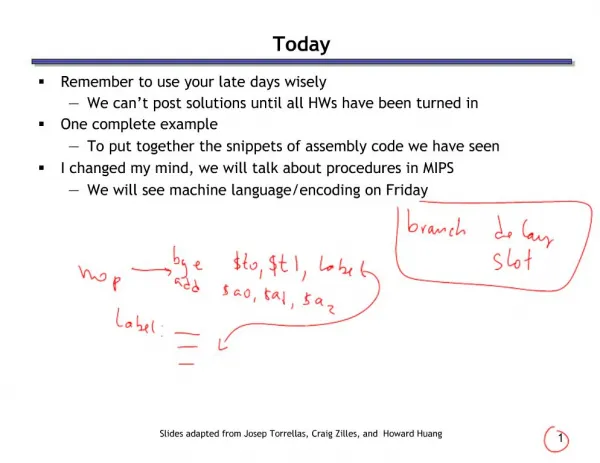 Today
▪ Remember to use your late days wisely
— We can't post solutions until all HWs have been turned in
▪ One complete example
— To put together the snippets of assembly code we have seen
▪ I changed my mind, we will talk about procedures in MIPS
— We will see machine language/encoding on Friday
branch delay
slot
bge $t0, $t1, label
nop add $a0, $a1, $a2
label:
Slides adapted from Josep Torrellas, Craig Zilles, and Howard Huang
1